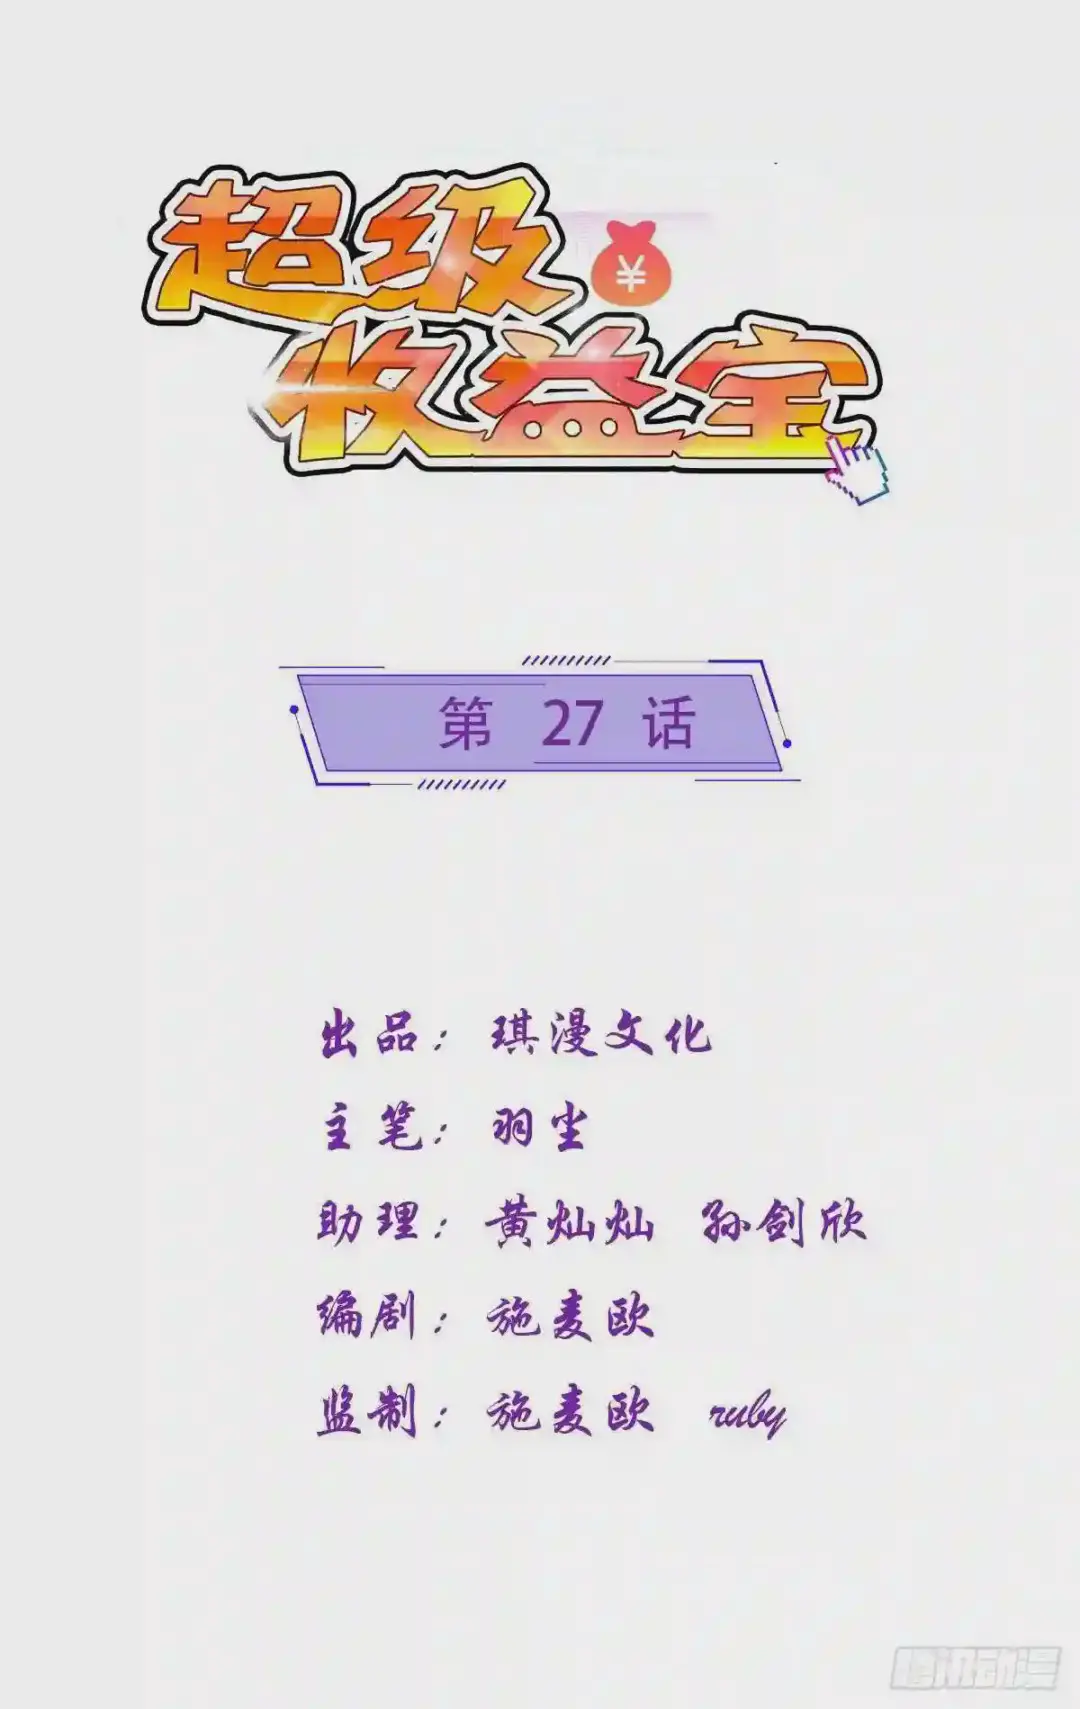 超级
收益宝
第 27 话
出品：琪漫文化
主笔：羽尘
助理：黄灿灿 孙剑欣
编剧：施麦欧
监制：施麦欧 ruby
腾讯动漫